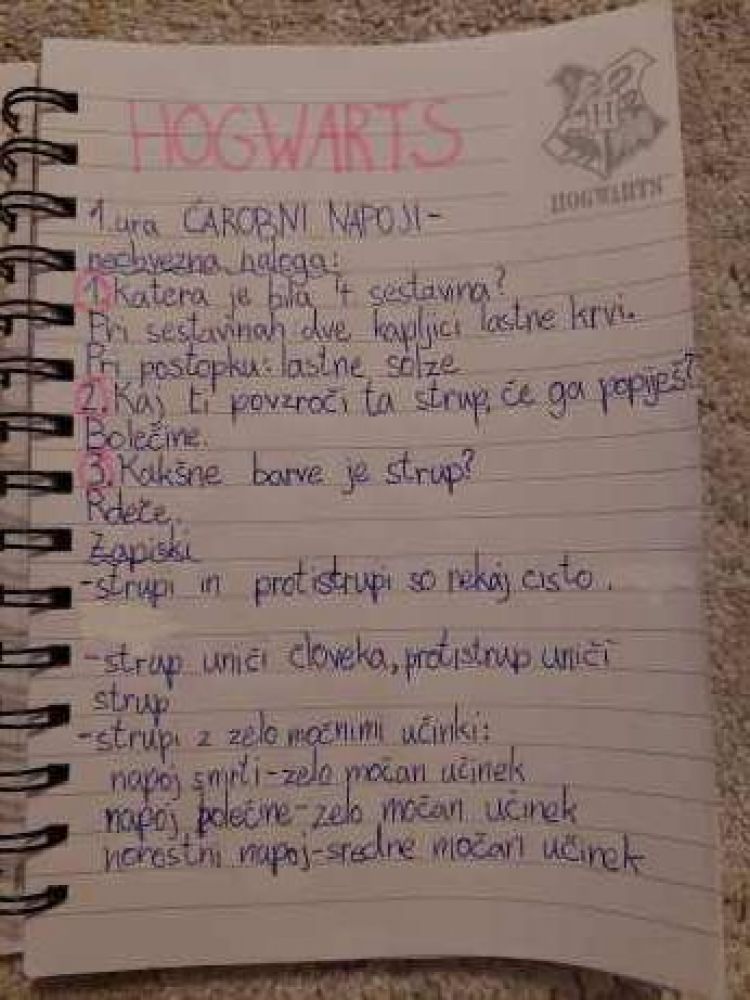 HOGWARTS
HOGWARTS
1. ura ČAROBNI NAPOJI-
neobvezna naloga:
1. Katera je bila 4 sestavina?
Pri sestavinah dve kapljici lastne krvi.
Pri postopku: lastne solze
2. Kaj ti povzroči ta strup, če ga popiješ?
Bolečine.
3. Kakšne barve je strup?
Rdeče.
Zapiski
-strupi in protistrupi so nekaj čisto.
-strup uniči človeka, protistrup uniči
strup
-strupi z zelo močnimi učinki:
napoj smrti-zelo močan učinek
napoj bolečine-zelo močan učinek
norostni napoj-sredne močan učinek